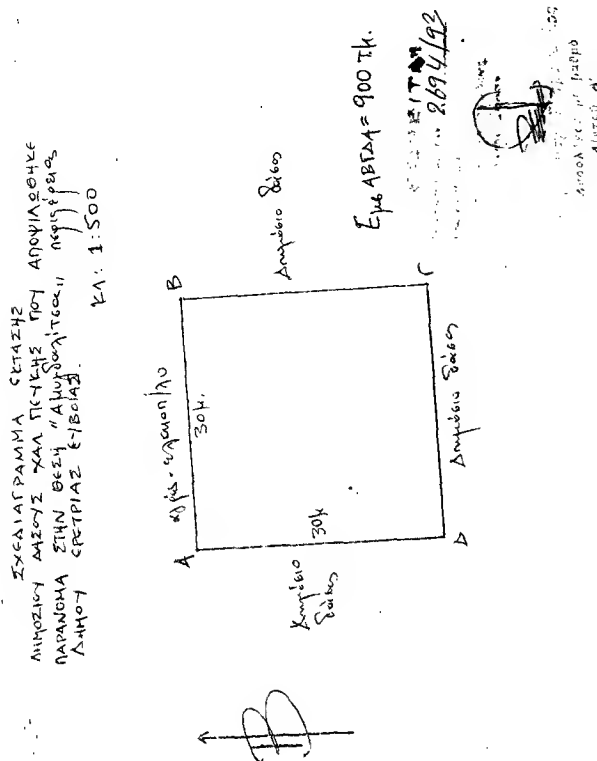 ΣΧΕΔΙΑΓΡΑΜΜΑ ΕΚΤΑΣΗΣ
ΔΗΜΟΣΙΟΥ ΔΑΣΟΥΣ ΧΑΛ ΠΕΥΚΗΣ ΠΟΥ ΑΠΟΨΙΛΩΘΗΚΕ
ΠΑΡΑΝΟΜΑ ΣΤΗΝ ΘΕΣΗ "Αμυγδαλίτσα" περιφέρειας
ΔΗΜΟΥ ΕΡΕΤΡΙΑΣ ΕΥΒΟΙΑΣ.
ΚΛ: 1:500
Α
Β
30μ.
30μ
Δημόσιο
δάσος
Δημόσιο δάσος
Δ
Γ
Δημόσιο δάσος
Εμβ ΑΒΓΔΑ = 900 τμ.
2694/93
Β